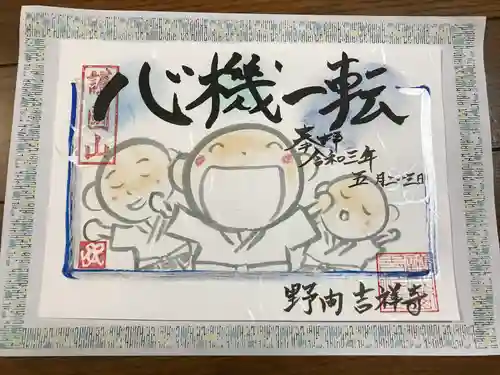 心機一転
奉拝
令和三年
五月二三日
護国山
野内 吉祥寺